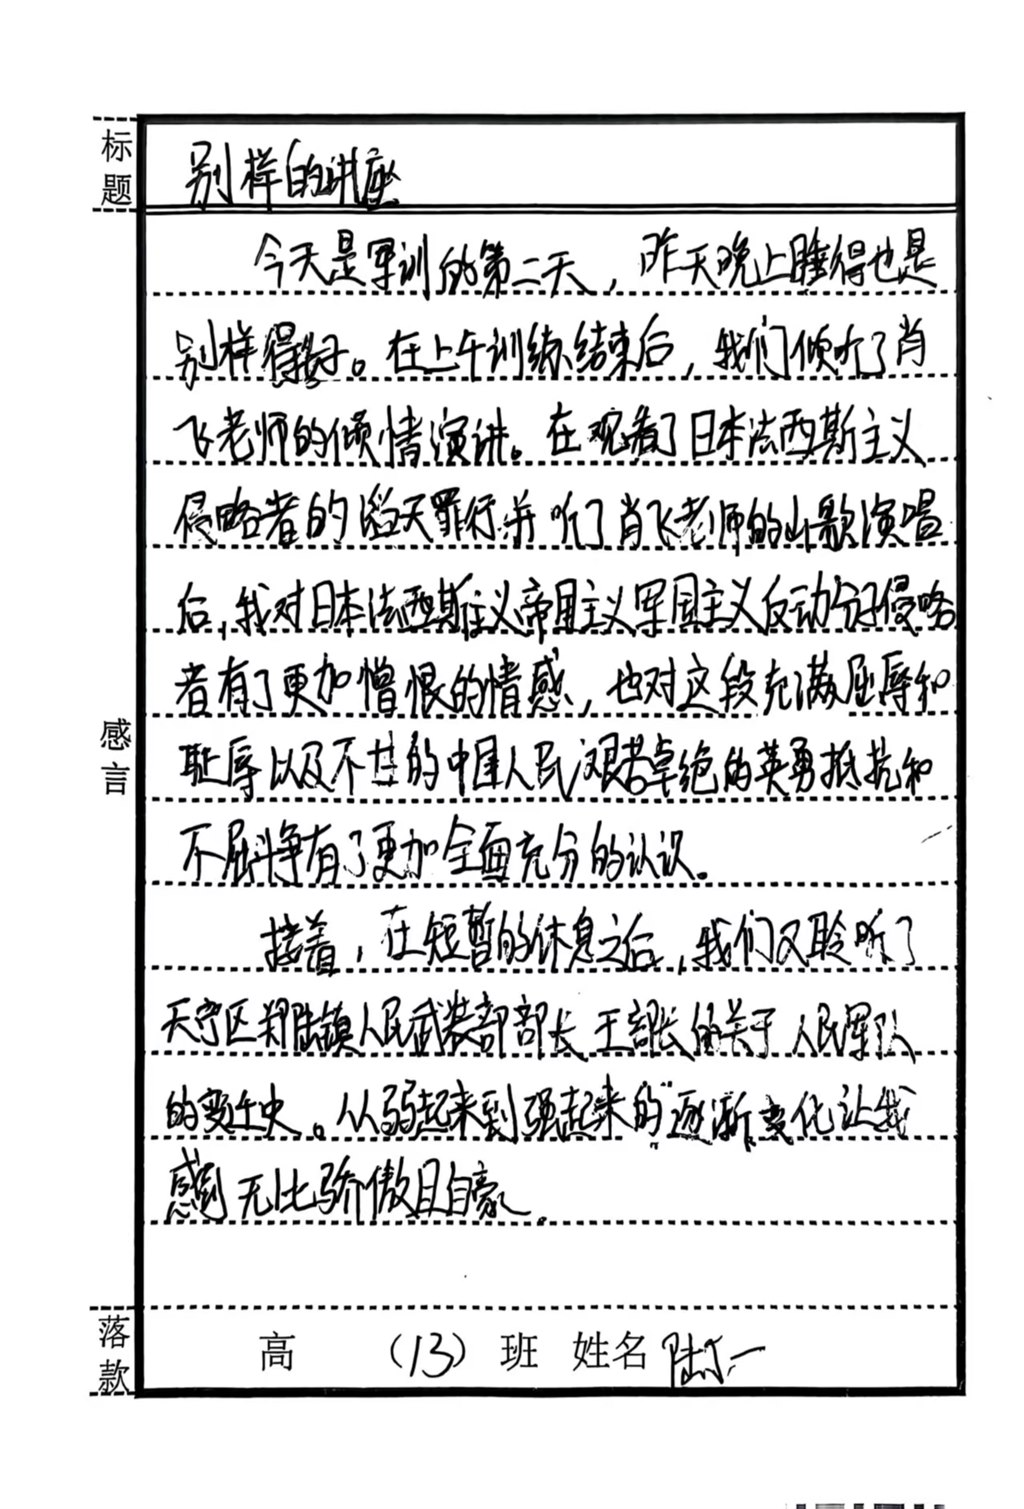 标题
别样的讲座
今天是军训的第二天，昨天晚上睡得也是
别样得好。在上午训练结束后，我们倾听了肖
飞老师的倾情演讲。在观看了日本法西斯主义
侵略者的滔天罪行并听了肖飞老师的山歌演唱
后，我对日本法西斯主义帝国主义军国主义反动分子侵略
者有了更加憎恨的情感，也对这段充满屈辱和
耻辱以及不甘的中国人民艰苦卓绝的英勇抵抗和
不屈斗争有了更加全面充分的认识。
感言
接着，在短暂的休息之后，我们又聆听了
天宁区郑陆镇人民武装部部长王部长的关于人民军队
的变迁史。从弱起来到强起来的逐渐变化让我
感到无比骄傲且自豪。
落款
高 （13）班 姓名 陆一